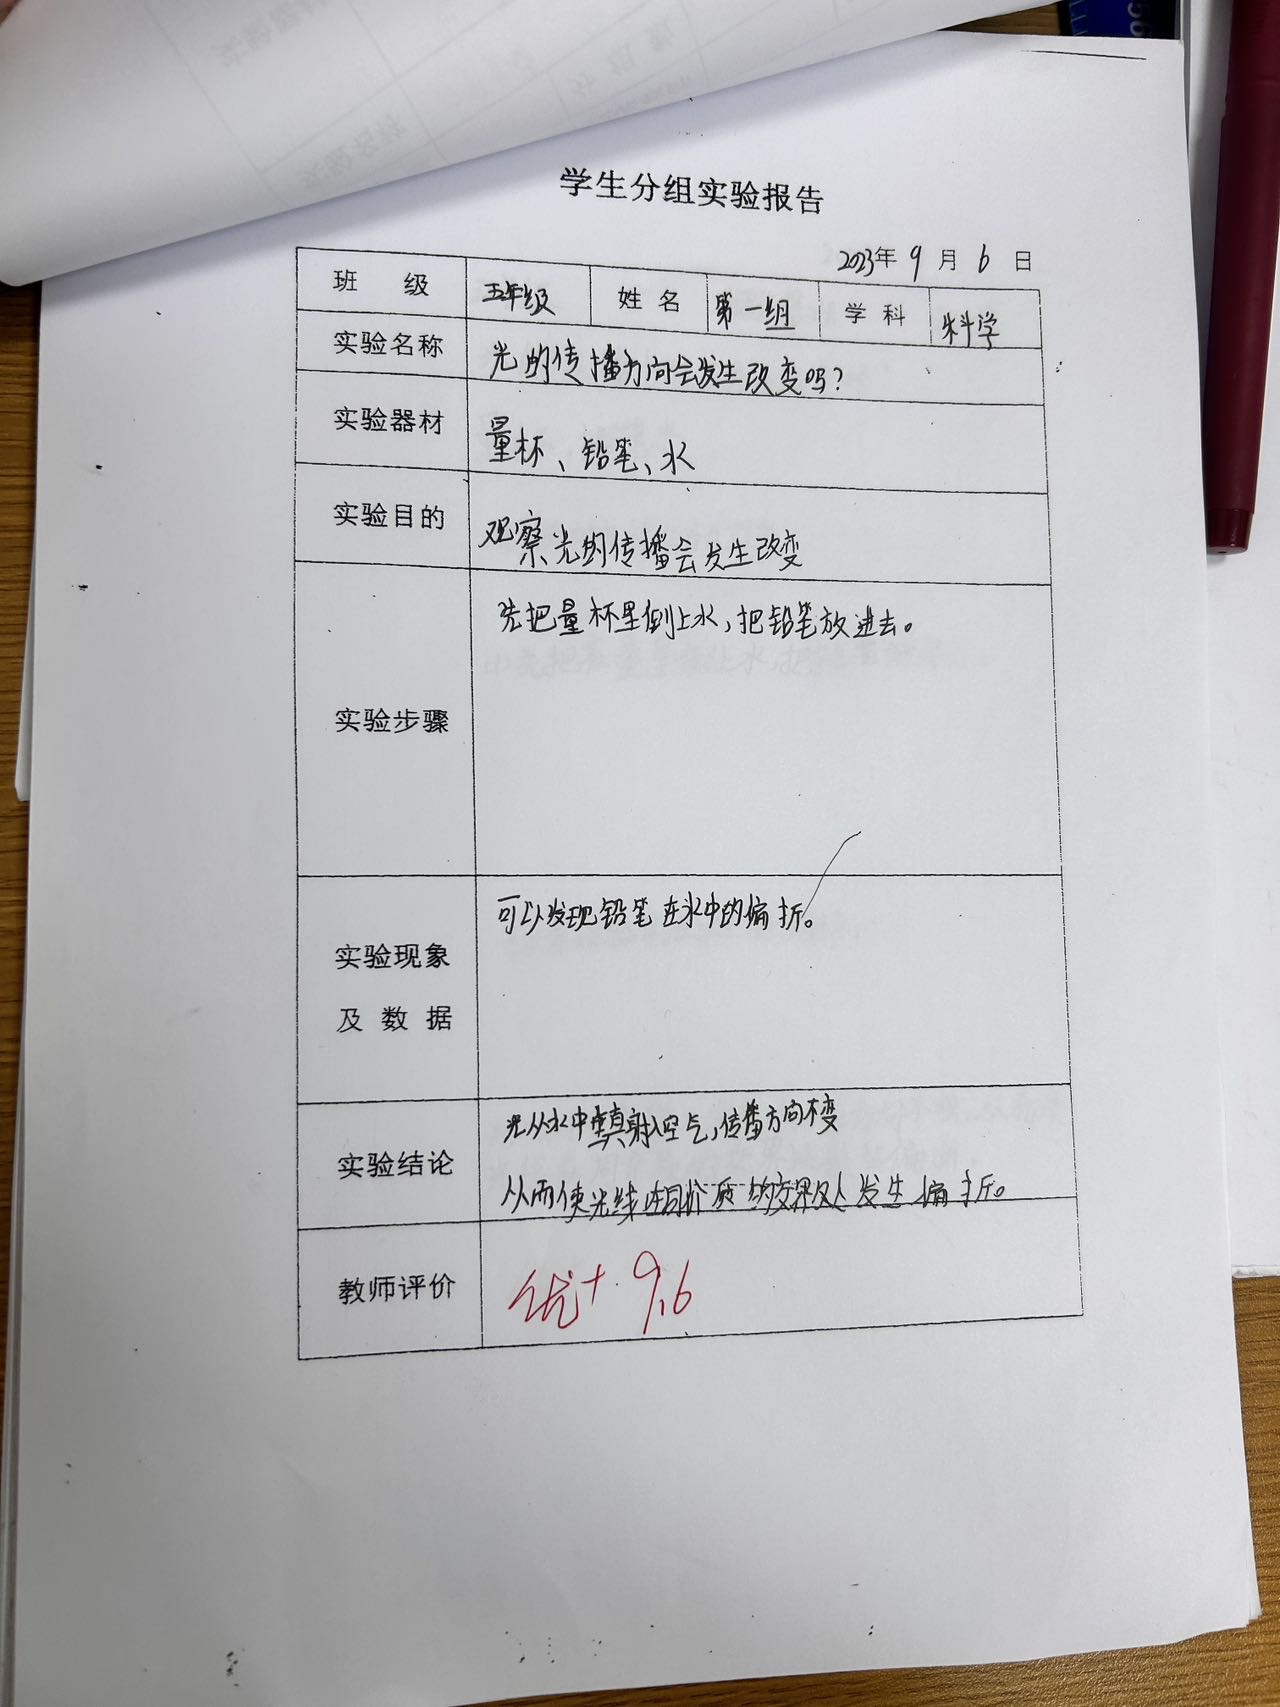 学生分组实验报告
2023年 9 月 6 日
班 级 五年级 姓 名 第一组 学 科 科学
实验名称 光的传播方向会发生改变吗?
实验器材 量杯、铅笔、水
实验目的 观察光的传播会发生改变
实验步骤 先把量杯里倒上水,把铅笔放进去。
实验现象
及 数 据
可以发现铅笔在水中的偏折。
实验结论
光从水中射入空气,传播方向不变
从而使光线在同介质的交界处发生偏折。
教师评价 优+ 9.6